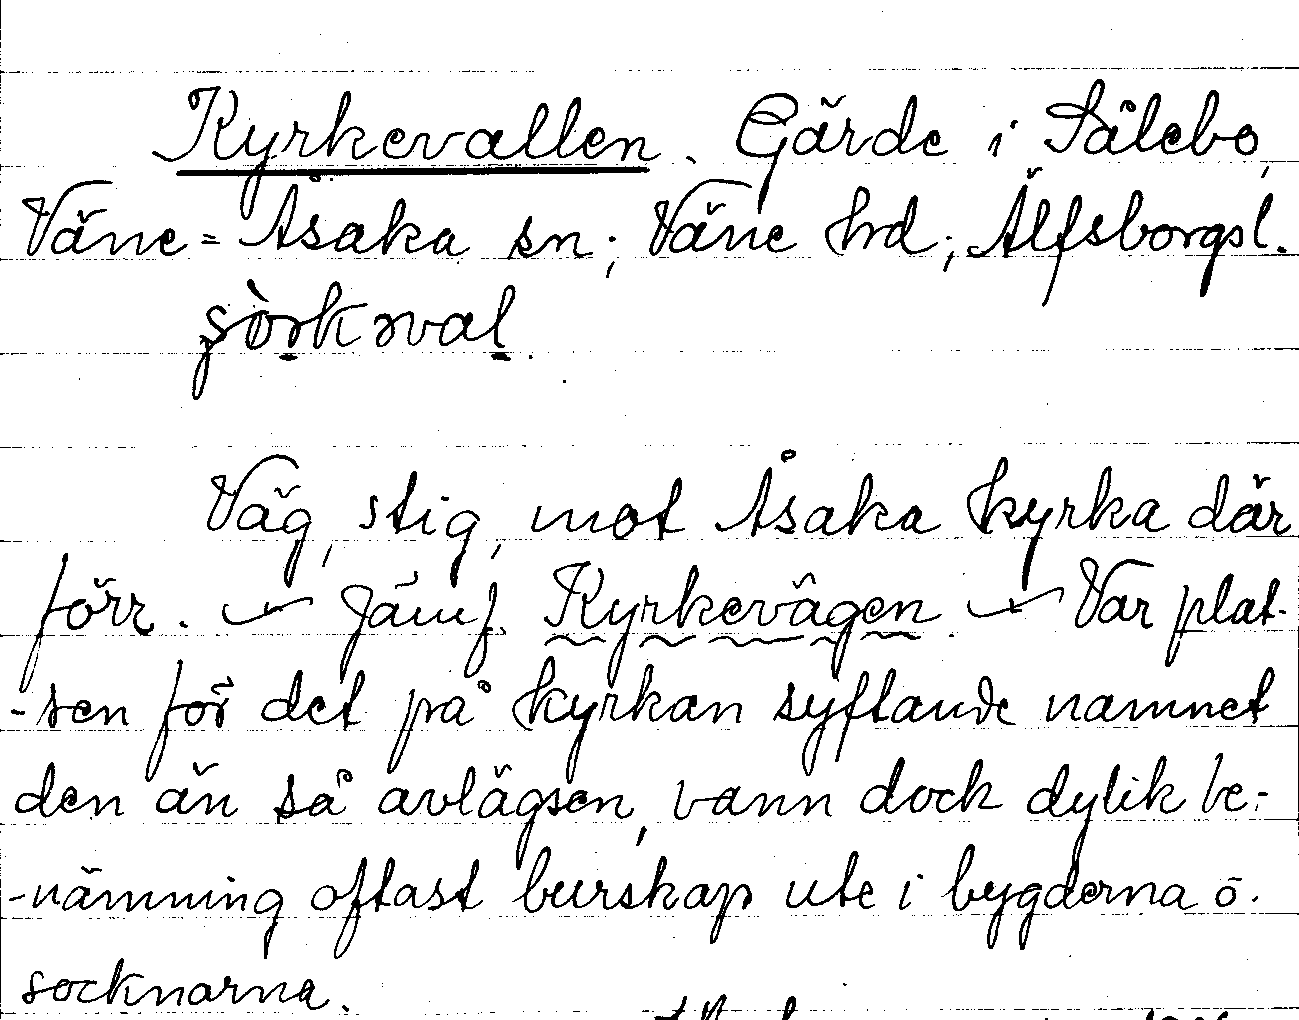 Kyrkevallen. Gärde i Sålebo,
Väne=Åsaka sn; Väne hrd; Älfsborgsl.
Väg, stig, mot Åsaka kyrka där
förr. – Jämf. Kyrkevägen – Var plat-
-sen för det på kyrkan syftande namnet
den än så avlägsen, vann dock dylik be-
-nämning oftast burskap ute i bygderna o.
socknarna.